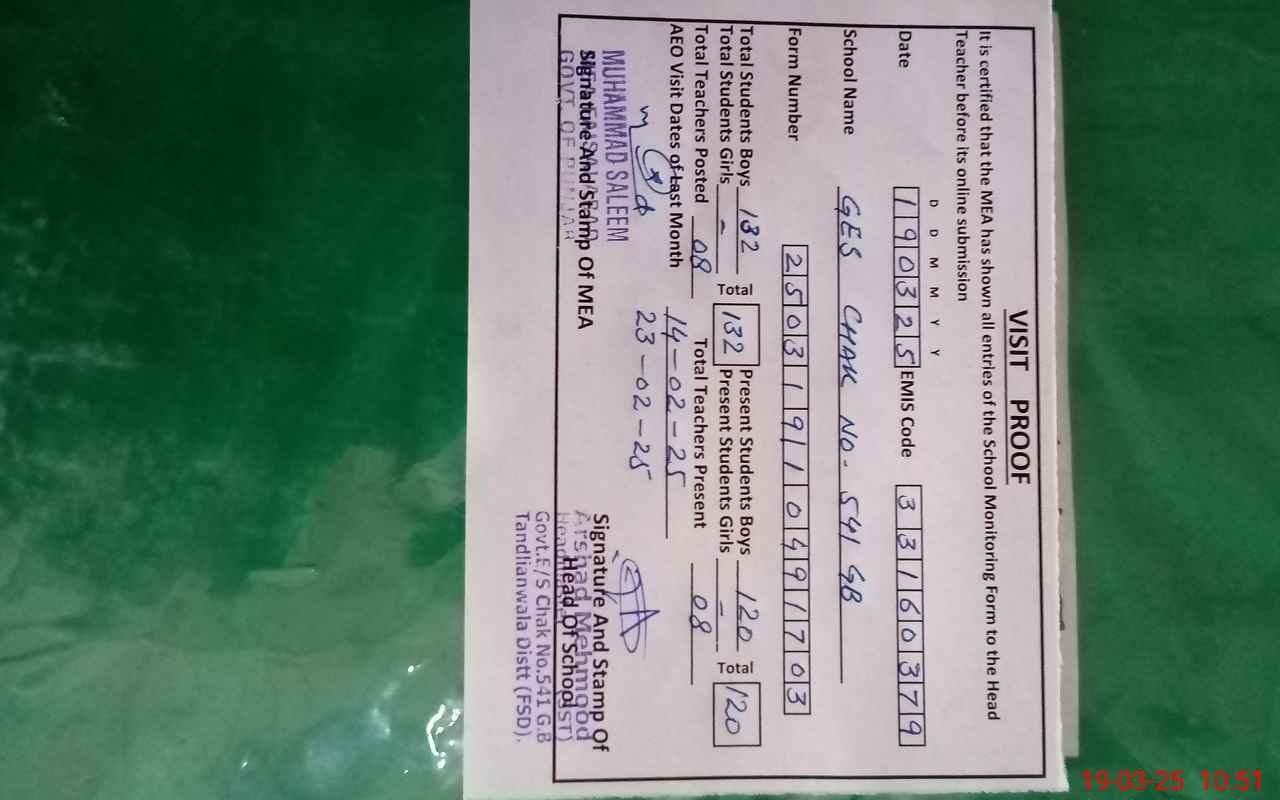 VISIT PROOF
It is certified that the MEA has shown all entries of the School Monitoring Form to the Head
Teacher before its online submission
D D M M Y Y
Date 1 9 0 3 2 5 EMIS Code 3 3 1 6 0 3 7 9
School Name GES CHAK NO. 541 GB
Form Number 2 5 0 3 1 9 1 1 0 4 9 1 7 0 3
Total Students Boys 132 Total 132 Present Students Boys 120 Total 120
Total Students Girls - Present Students Girls -
Total Teachers Posted 08 Total Teachers Present 08
AEO Visit Dates of Last Month 14-02-25
23-02-25
MUHAMMAD SALEEM
Signature And Stamp Of MEA
GOVT. OF PUNJAB
Signature And Stamp Of
Head Of School
Arshad Mehmood
Govt.E/S Chak No.541 G.B
Tandlianwala Distt (FSD).
19-03-25 10:51